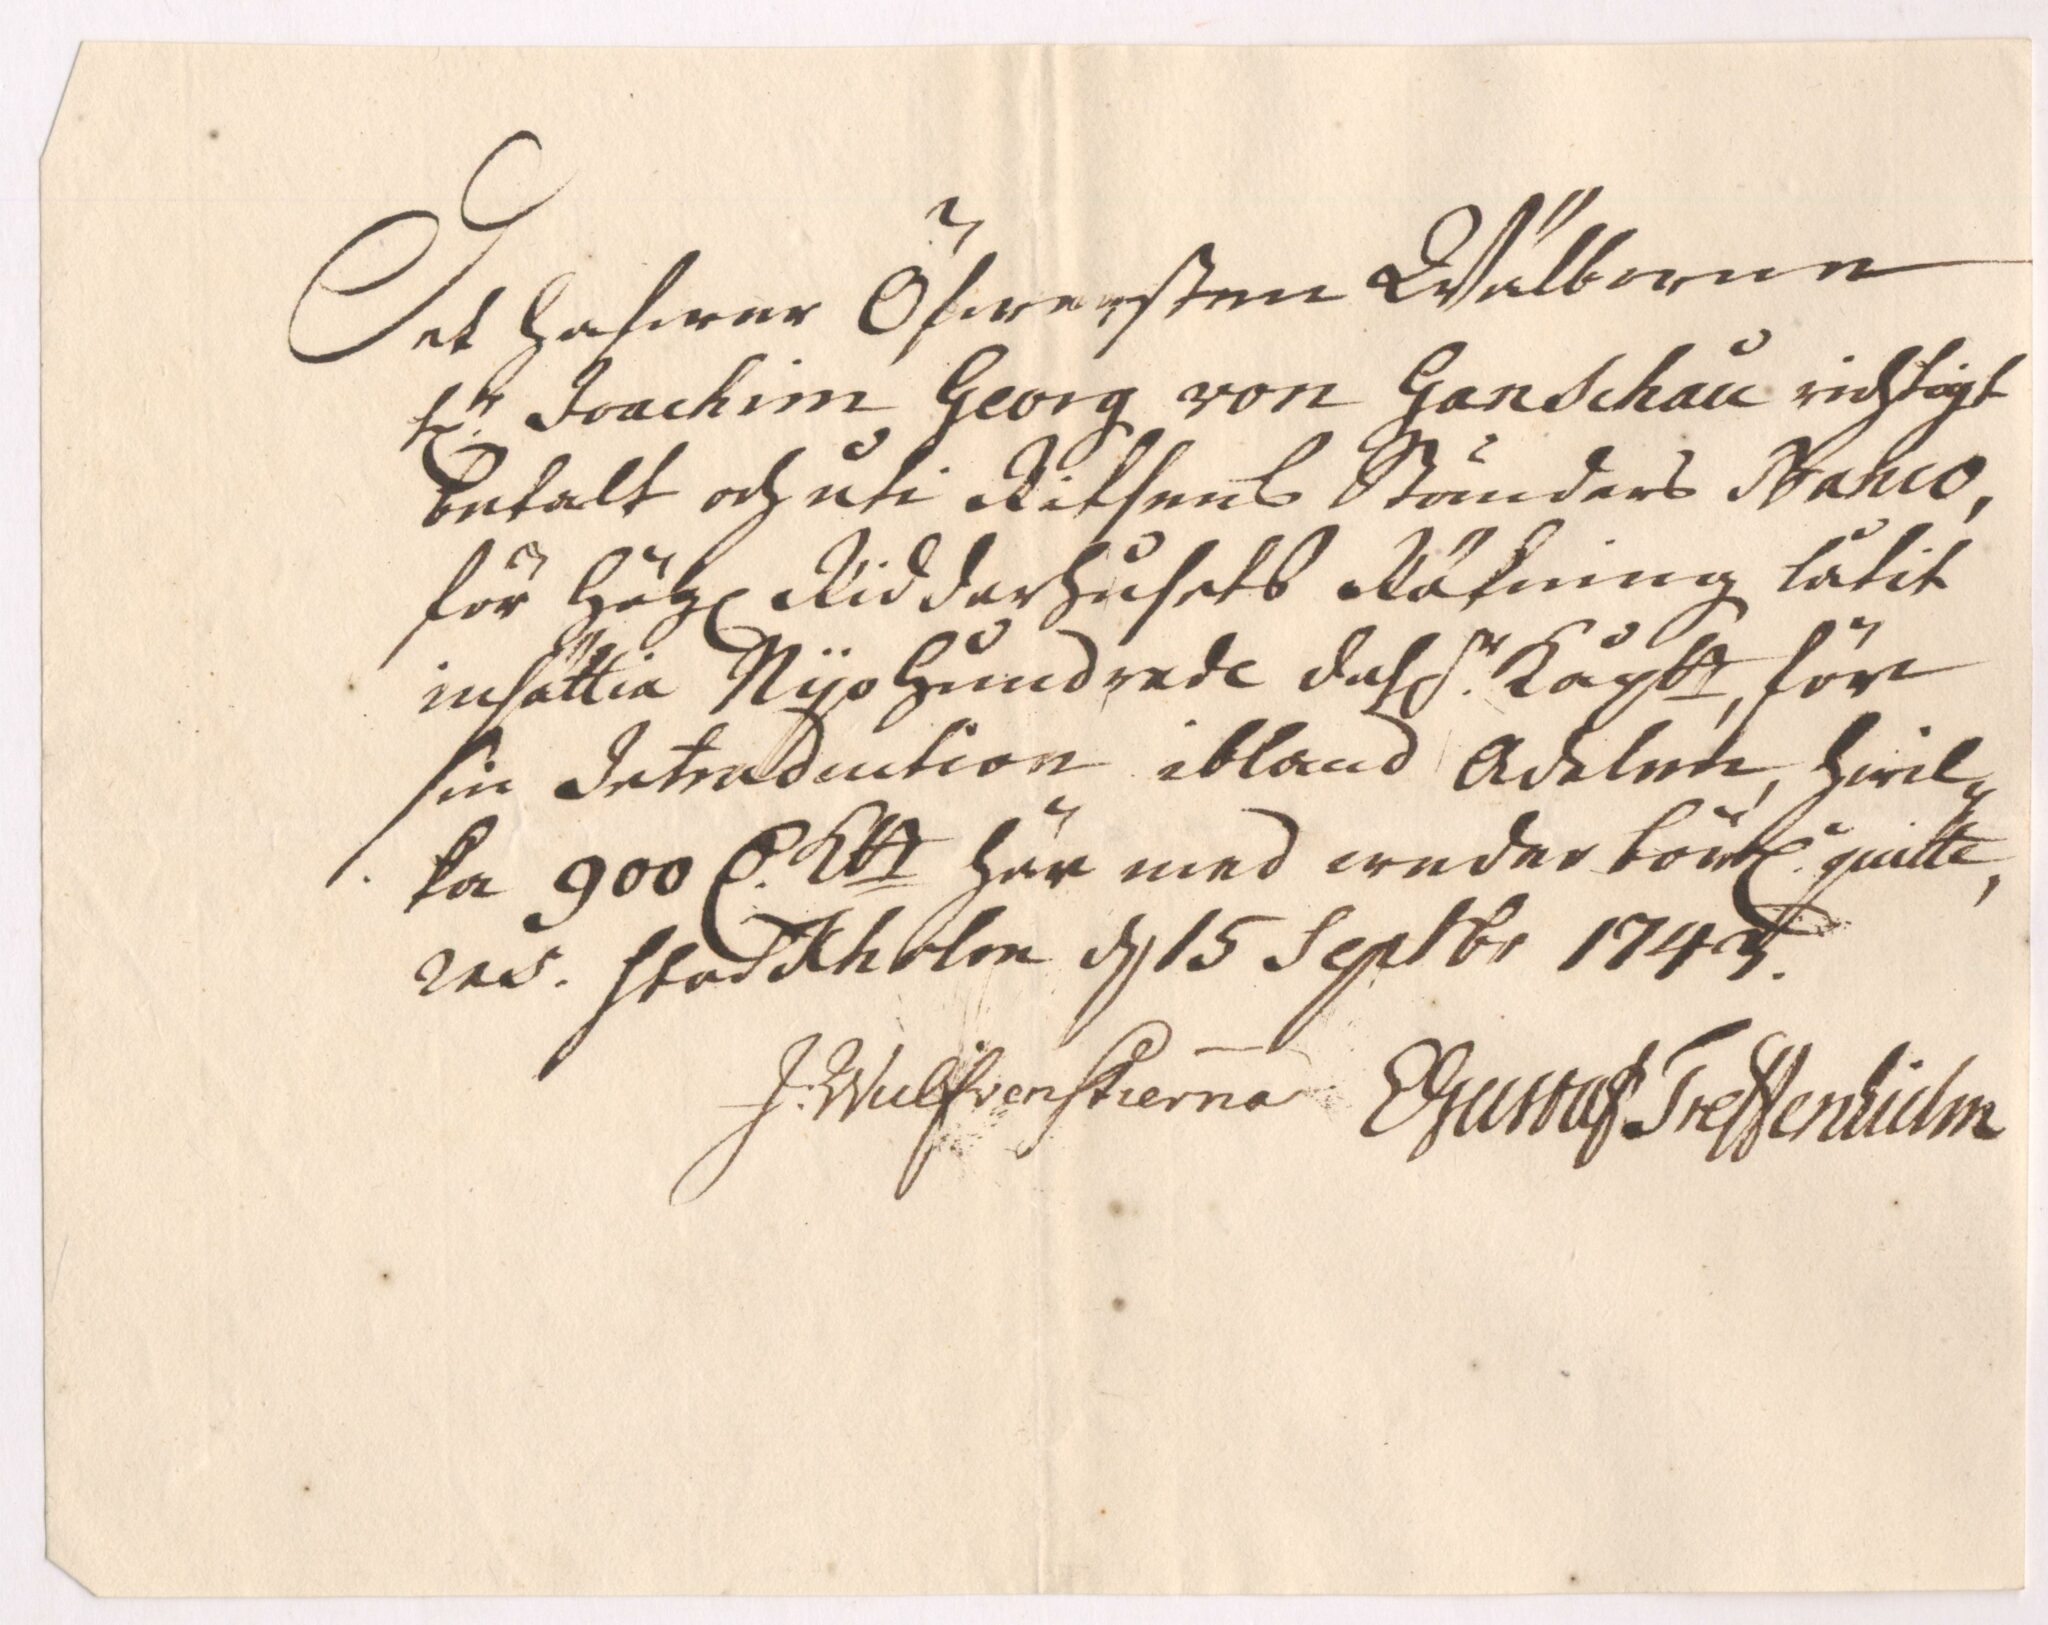 Det hafwer Öfwersten Wälborne
H:r Joachim Georg von Ganschau richtigt
betalt och uti Riksens Ständers Banco,
för Högl. Ridderhusets Räkning låtit
insättia Nijohundrade dal. S:r Kåpt, för
sin Introduction ibland Adelen, hwil-
ka 900 d. Kt här med wederbörl. quitte,
res. Stockholm d 15 Septbr 1743.
J: Wulfvenstierna Gustaf Treffenhielm